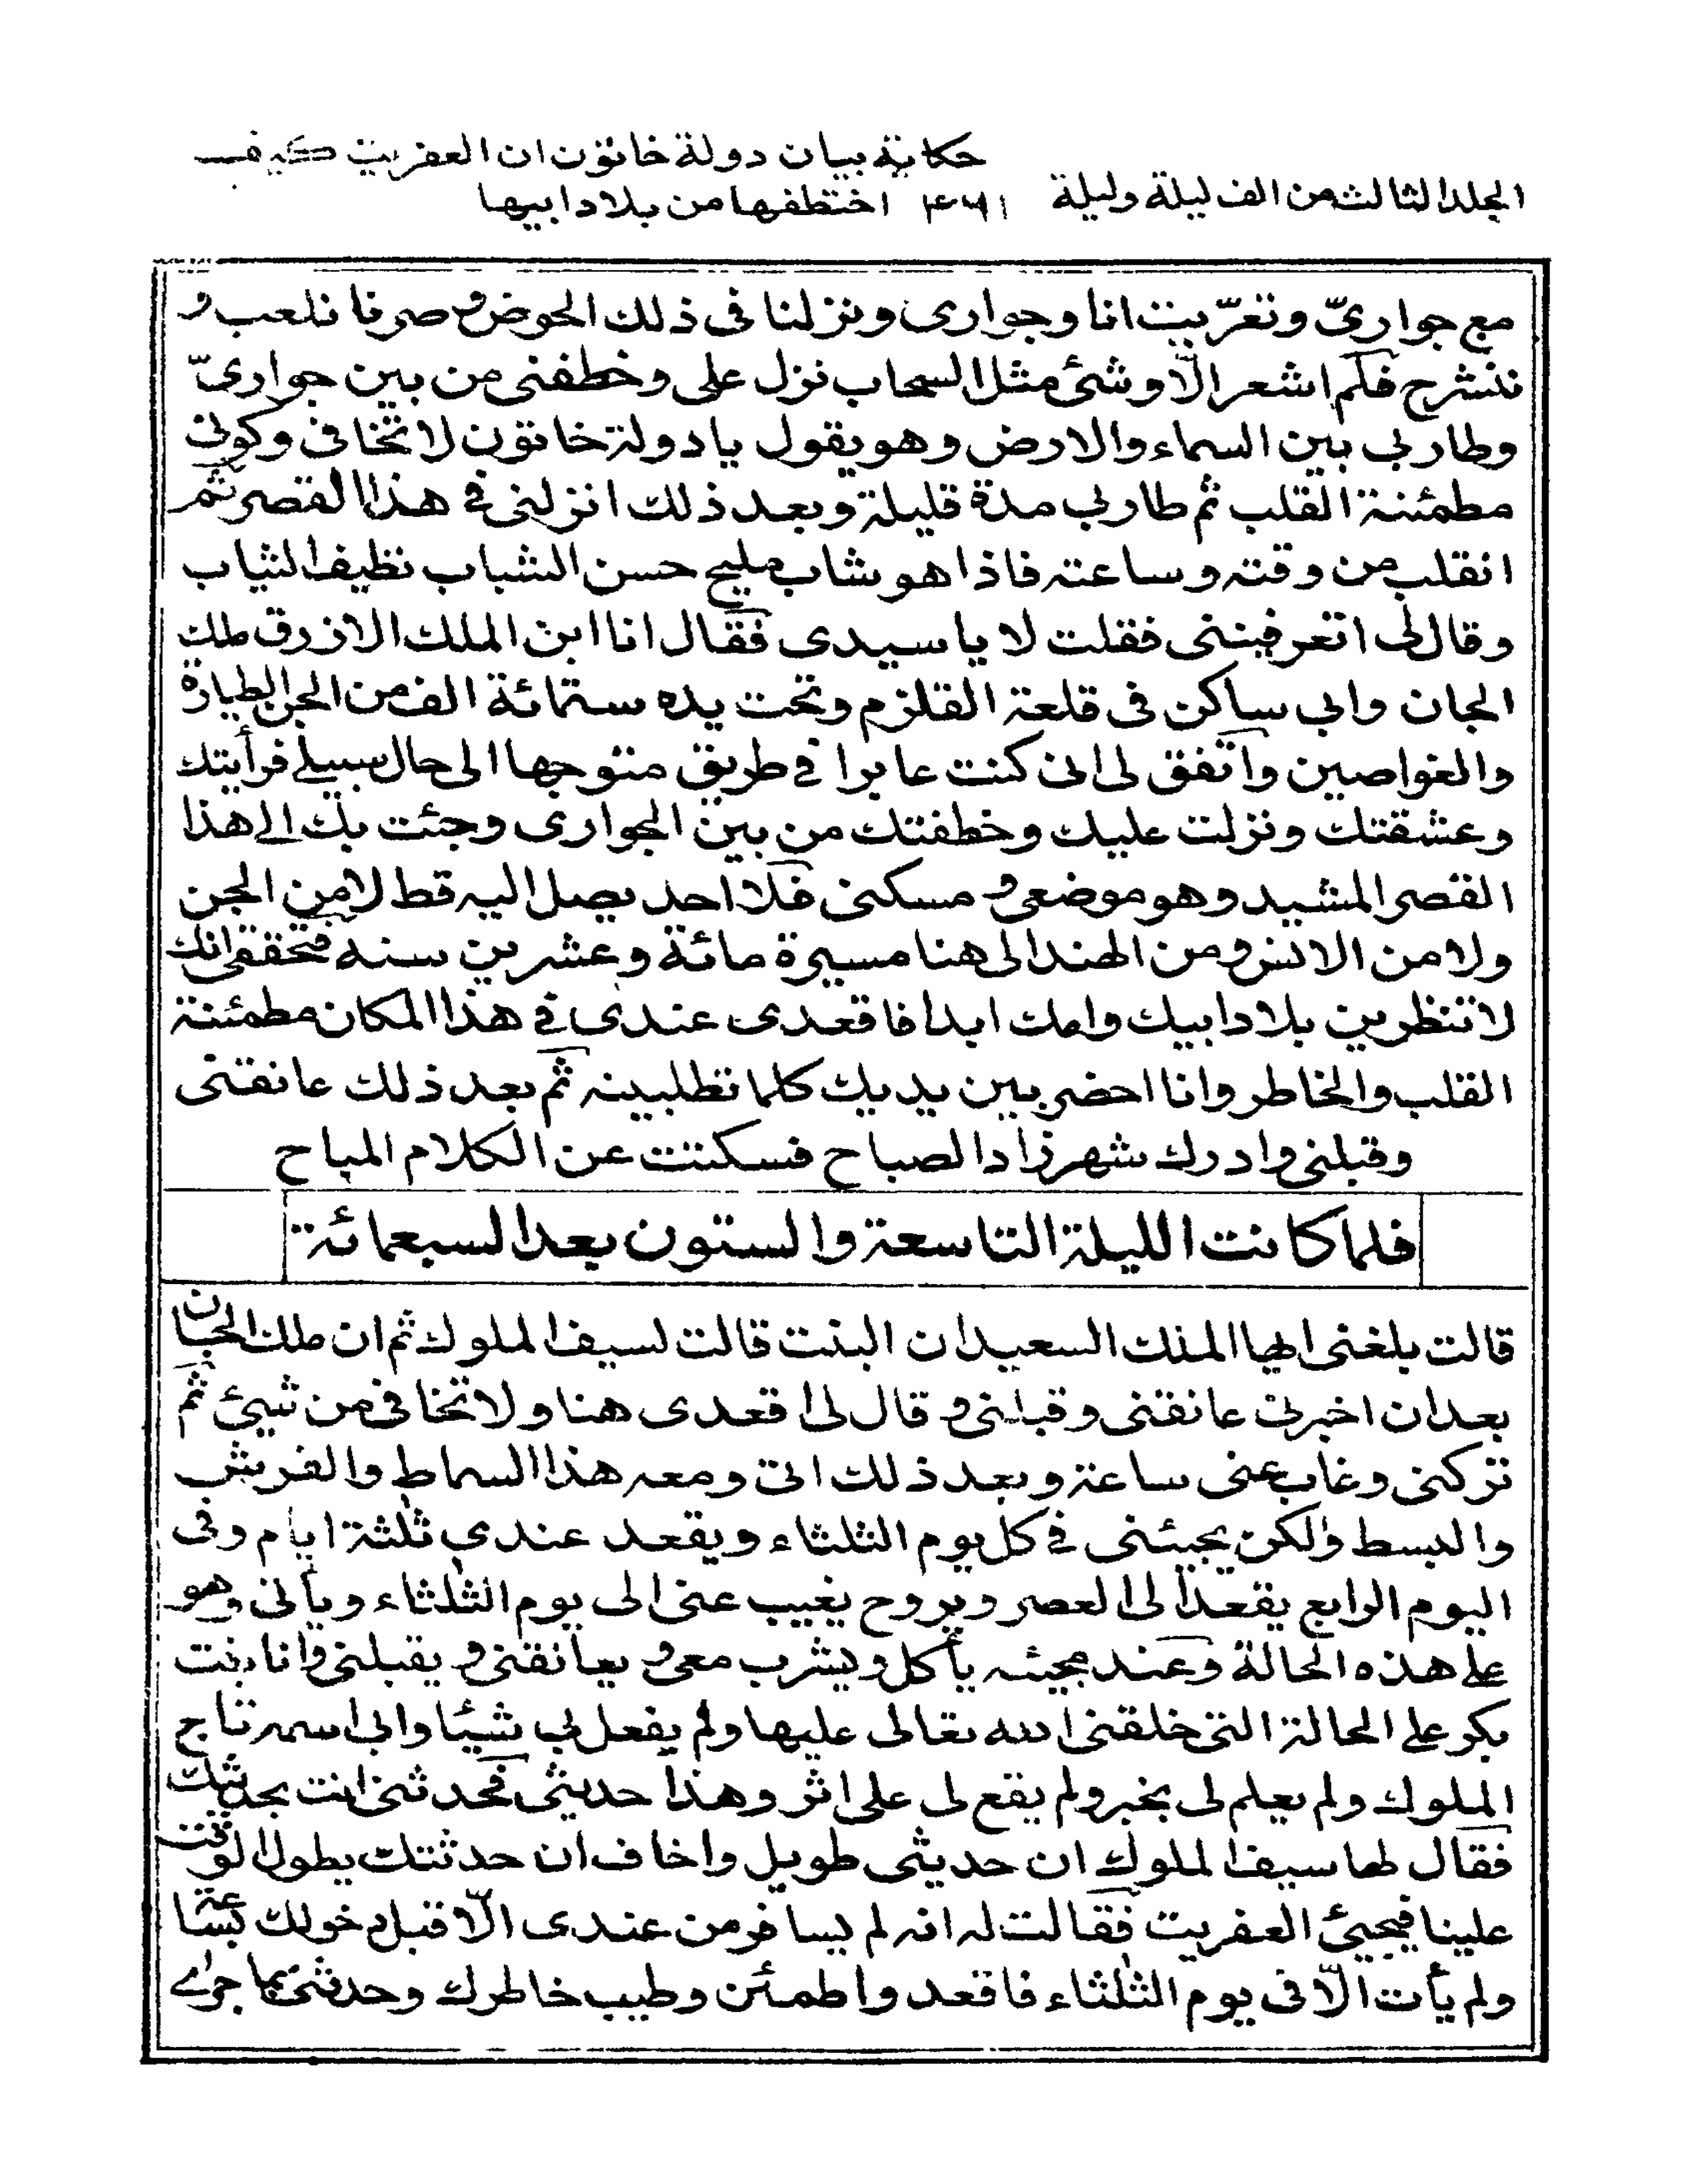 حكاية بيان دولة خاتون ان العفريت كيف
المجلد الثالث من الف ليلة وليلة اختطفها من بلاد ابيها
مع جواريّ وتعرّيت انا وجوارى ونزلنا فى ذلك الحوض وصرنا نلعب و
ننشرح فلم اشعر الّا وشئ مثل السحاب نزل على وخطفنى من بين جواريّ
وطار بي بين السماء والارض وهو يقول يا دولة خاتون لا تخافى وكونى
مطمئنة القلب ثم طار بي مدة قليلة وبعد ذلك انزلنى فى هذا القصر ثم
انقلب من وقته وساعته فاذا هو شاب مليح حسن الشباب نظيف الثياب
وقال لى اتعرفيننى فقلت لا يا سيدى فقال انا ابن الملك الازرق ملك
الجان وابي ساكن فى قلعة القلزم وتحت يده ستمائة الف من الجن الطيارة
والغواصين واتفق لى انى كنت عابرا فى طريق متوجها الى حال سبيلى فرأيتك
وعشقتك ونزلت عليك وخطفتك من بين الجوارى وجئت بك الى هذا
القصر المشيد وهو موضعى و مسكنى فلا احد يصل اليه قط لا من الجن
ولا من الانس ومن الهند الى هنا مسيرة مائة وعشرين سنه فتحققى انك
لا تنظرين بلاد ابيك وامك ابدا فاقعدى عندى فى هذا المكان مطمئنة
القلب والخاطر وانا احضر بين يديك كلما تطلبينه ثم بعد ذلك عانقنى
وقبلنى وادرك شهرزاد الصباح فسكتت عن الكلام المباح
فلما كانت الليلة التاسعة والستون بعد السبعمائة
قالت بلغنى ايها الملك السعيد ان البنت قالت لسيف الملوك ثم ان ملك الجان
بعد ان اخبرنى عانقنى وقبلنى و قال لى اقعدى هنا ولا تخافى من شيئ ثم
تركنى وغاب عنى ساعة وبعد ذلك اتى ومعه هذا السماط والفرش
والبسط ولكن يجيئنى فى كل يوم الثلثاء ويقعد عندي ثلثة ايام وفى
اليوم الرابع يقعد الى العصر ويروح يغيب عنى الى يوم الثلثاء ويأتى وهو
على هذه الحالة وعند مجيئه يأكل ويشرب معى و يعانقنى و يقبلنى وانا بنت
بكر على الحالة التى خلقنى الله تعالى عليها ولم يفعل بي شيئا وابي اسمه تاج
الملوك ولم يعلم لى بخبر ولم يقع لى على اثر وهذا حديثى فحدثنى انت بحديثك
فقال لها سيف الملوك ان حديثى طويل واخاف ان حدثتك يطول الوقت
علينا فيجيئ العفريت فقالت له انه لم يسافر من عندى الّا قبل دخولك بساعة
ولم يأت الّا فى يوم الثلثاء فاقعد واطمئن وطيب خاطرك وحدثنى بما جرى